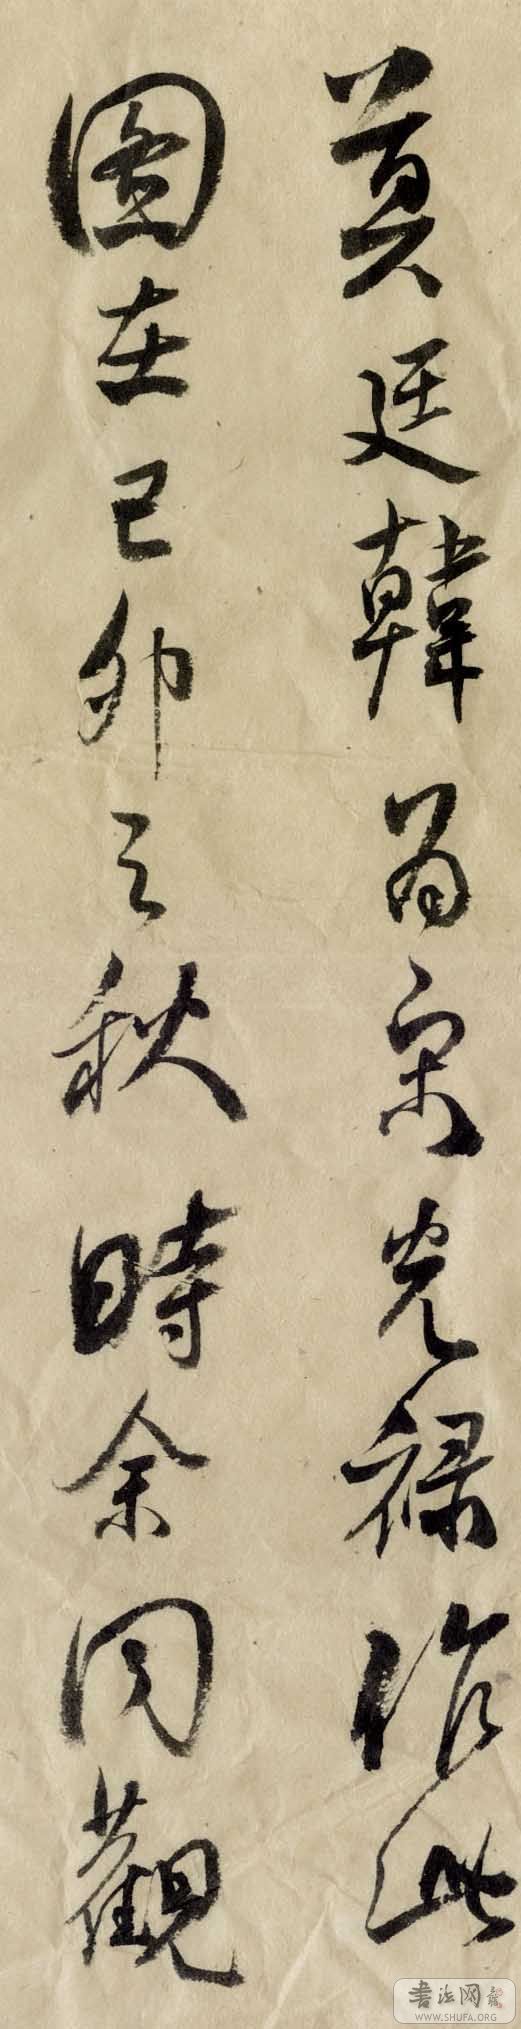 莫廷韓为宋光禄作此
图在己卯之秋時余同觀
書法网
WWW.SHUFA.ORG